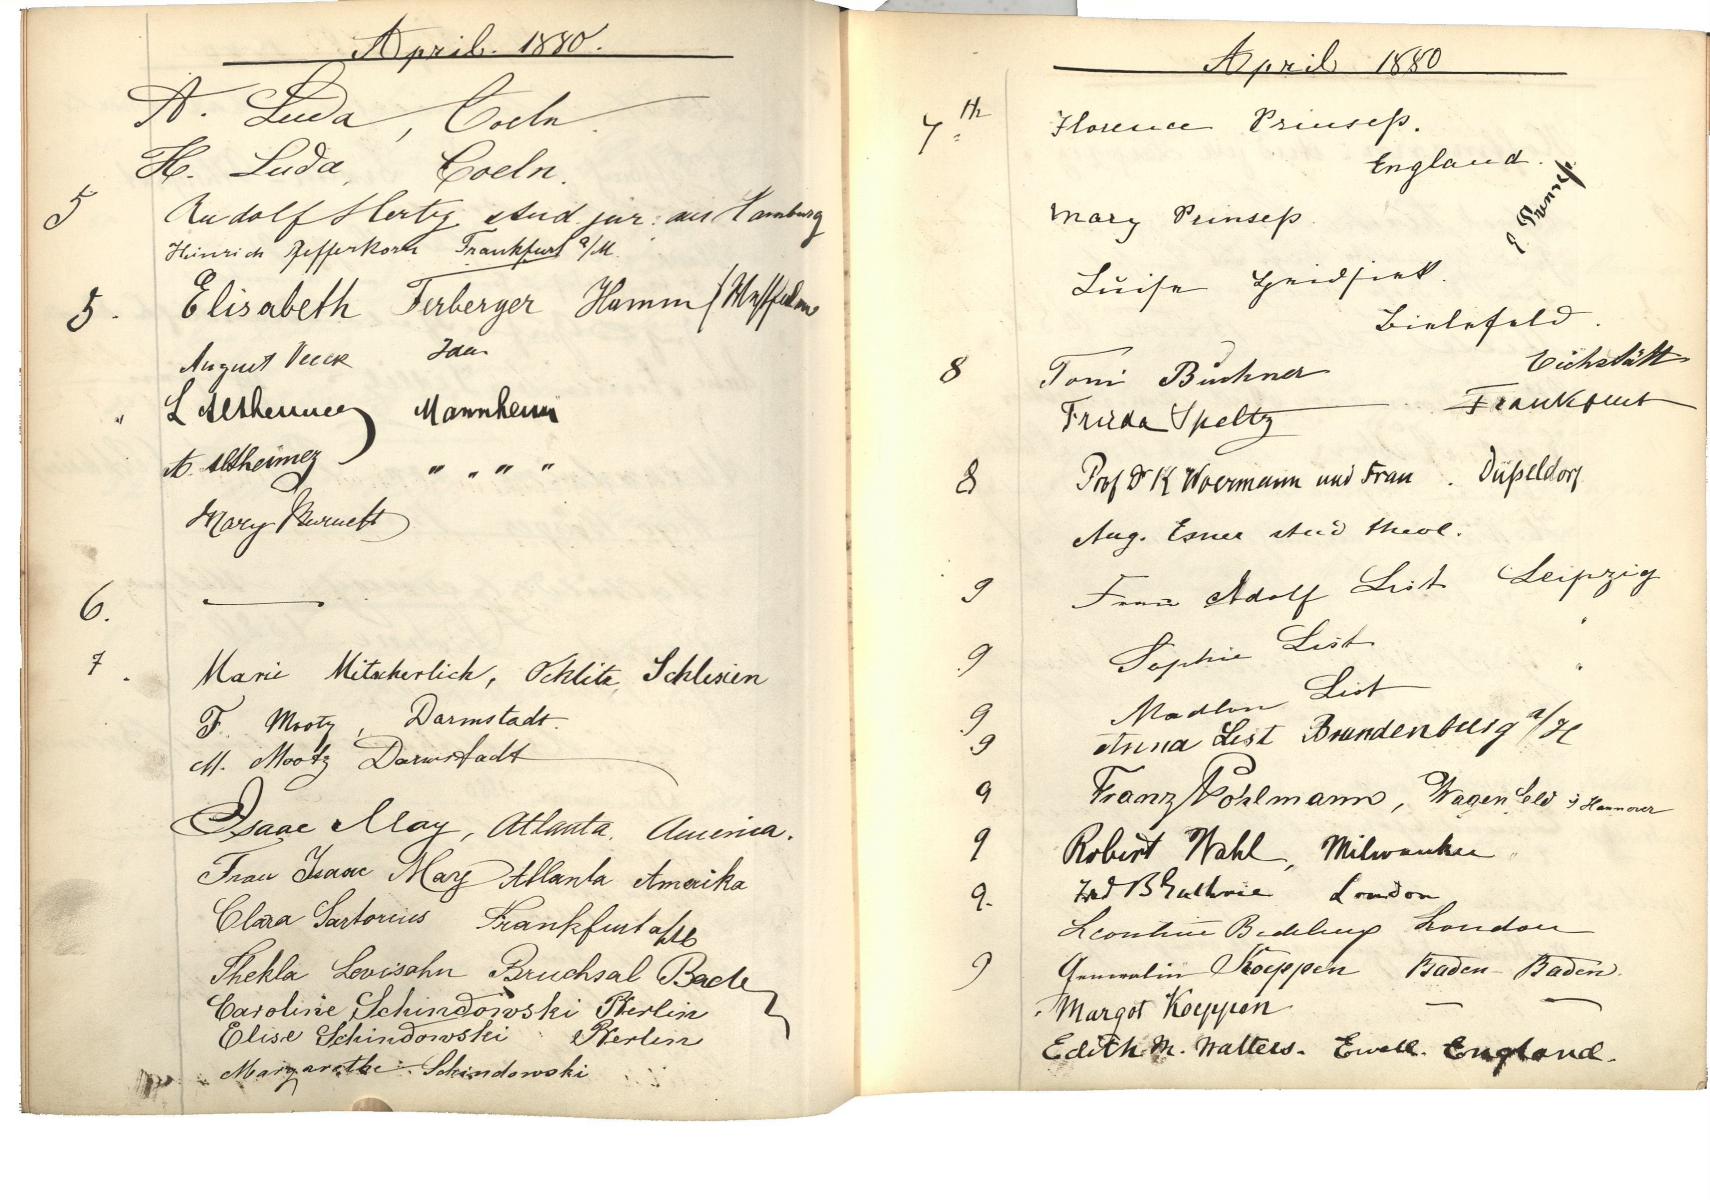 April. 1880.
A. Luda, Coeln.
H. Luda, Coeln.
5 Rudolf Hertz stud. jur. aus Hamburg
Heinrich Pfefferkorn Frankfurt a/M.
5. Elisabeth Ferberger Hamm (Westfalen
August Veeck Idar
" L Altheimer Mannheim
A. Altheimer " " " "
Mary Burnett
6. —
7. Marie Mitscherlich, Ocklitz, Schlesien
F. Mootz, Darmstadt.
M. Mootz Darmstadt
Isaac May, Atlanta, America.
Frau Isaac May Atlanta Amerika
Clara Sartorius Frankfurt a/M
Thekla Levisohn Bruchsal Baden
Caroline Schindowski Berlin
Elise Schindowski Berlin
Margarethe Schindowski
April 1880
7th Florence Prinseß.
England.
Mary Prinseß.
Luise
Bielefeld.
8 Toni Buchner Eichstätt
Frieda Speltz Frankfurt
8 Prof Dr K Woermann und Frau. Düßeldorf
Aug. stud theol.
9 Frau Adolf List Leipzig
9 Sophie List "
9 Madlon List
9 Anna List Brandenburg a/H
9 Franz Pohlmann, Wagenfeld i/ Hannover
9 Robert Wahl, Milwaukee
9. Fred B Guthrie London
Leontine London
9 Generalin Koeppen Baden-Baden.
Margot Koeppen — —
Edith M. Walters. Ewell. England.